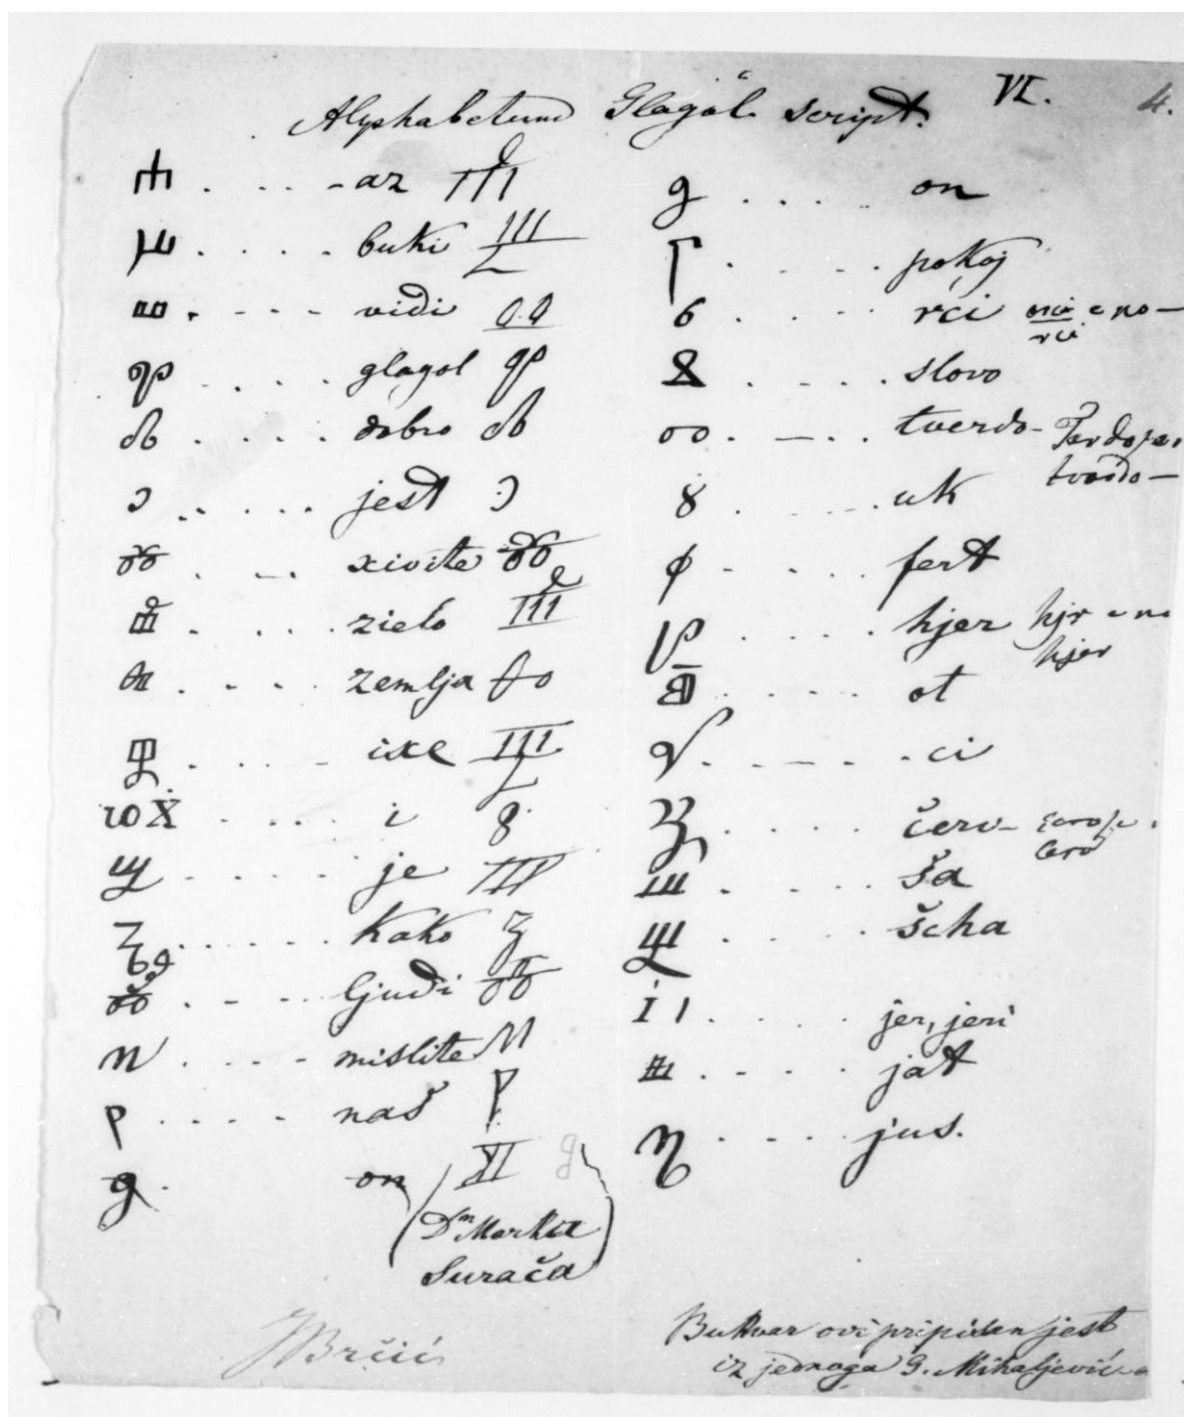 Alphabetum Glagol. script. VI. 4.
Ⰰ . . . - az
Ⰱ . . . . buki
Ⰲ . - - - vidi
Ⰳ . . . . glagol
Ⰴ . . . . dobro
Ⰵ . . . . . jest
Ⰶ . - . xivite
Ⰷ . . . . zielo
Ⰸ . - . . zemlja
Ⰹ . . . - ixe
Ⰺ Ⰻ . . . . i
Ⰼ . . . . je
Ⰽ . . . . . . kako
Ⰾ . - . . ljudi
Ⰿ . . . - mislite
Ⱀ . . . . naš
Ⱁ . on
(Dn Marka
Surača)
Ⱁ . . . . on
Ⱂ . . . . pokoj
Ⱃ . . . . rći
Ⱄ . - . . slovo
Ⱅ . - . . tverdo - tvordo -
Ⱆ . . . . uk
Ⱇ - . . . fert
Ⱈ . . . . hjer hjer
Ⱉ . . . . ot
Ⱌ . - - . ci
Ⱍ . . . . červ -
Ⱎ . . . . ša
Ⱋ . . . . šcha
I I . . . . jer, jeri
Ⱑ . - . . jat
Ⱓ . - - . jus.
IBrčić
Bukvar ovi pripisan jest
iz jednoga G. Mihaljević